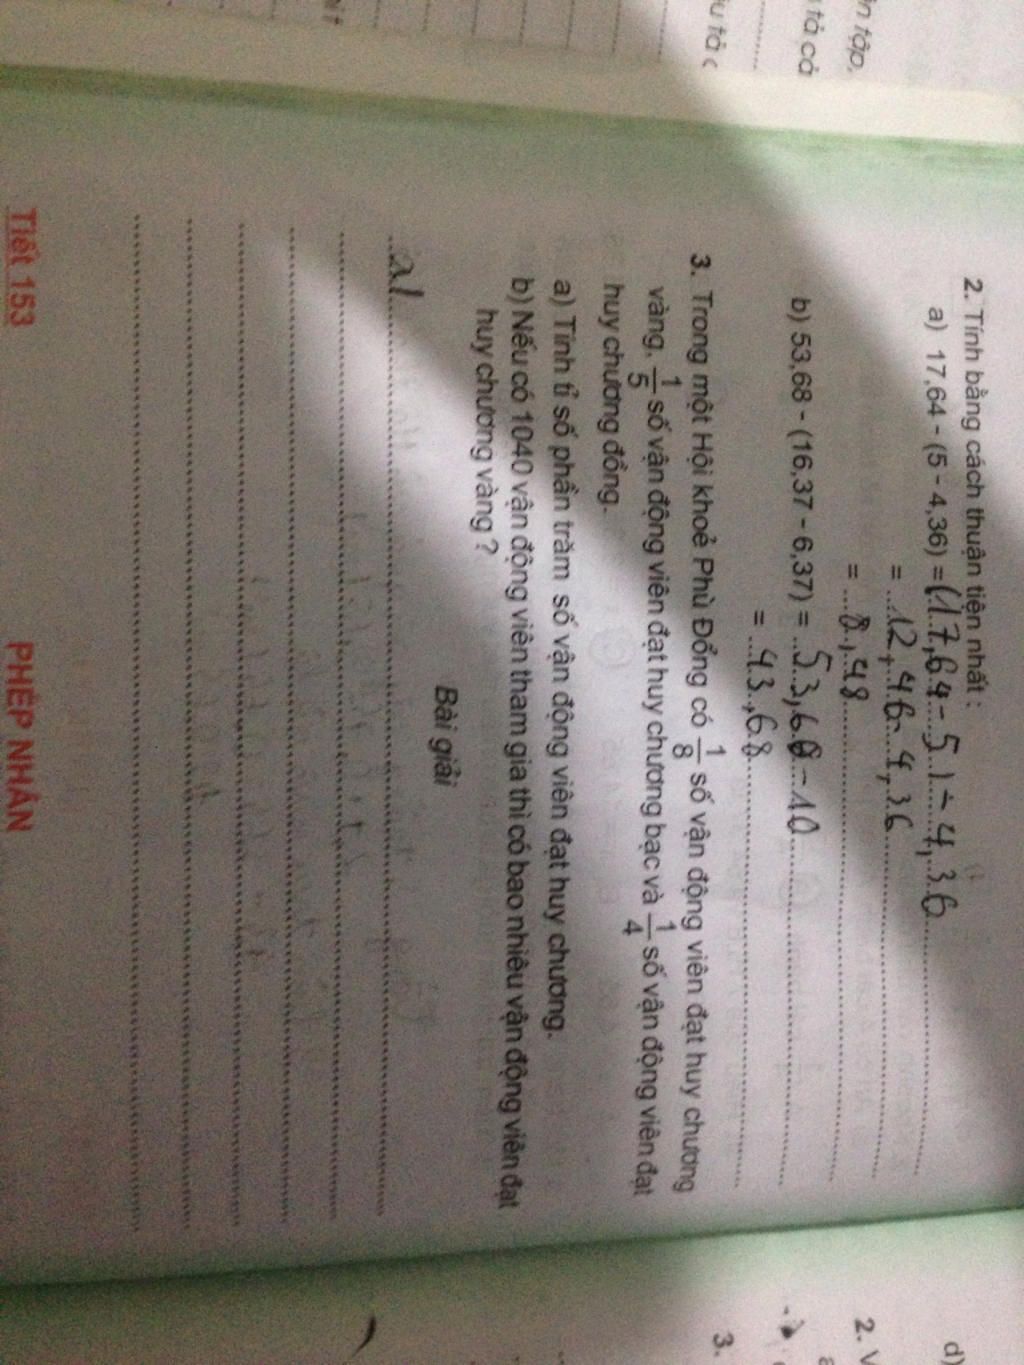 2. Tính bằng cách thuận tiện nhất :
a) 17,64 - (5 - 4,36) = (17,64 - 5) - 4,36
= 12,46 - 4,36
= 8,48
b) 53,68 - (16,37 - 6,37) = 53,68 - 10
= 43,68
3. Trong một Hội khoẻ Phù Đổng có 1/8 số vận động viên đạt huy chương
vàng, 1/5 số vận động viên đạt huy chương bạc và 1/4 số vận động viên đạt
huy chương đồng.
a) Tính tỉ số phần trăm số vận động viên đạt huy chương.
b) Nếu có 1040 vận động viên tham gia thì có bao nhiêu vận động viên đạt
huy chương vàng ?
Bài giải
a)
Tiết 153
PHÉP NHÂN
n tập,
tả cả
u tả c
d)
2. V
3.